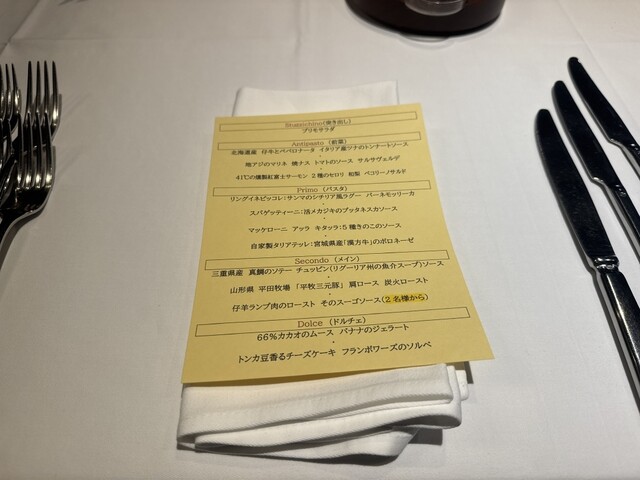 Stuzzichino(突き出し)
プリモサラダ
Antipasto (前菜)
北海道産 仔牛とペペロナータ イタリア産ツナのトンナートソース
・
地アジのマリネ 焼ナス トマトのソース サルサヴェルデ
・
41℃の燻製紅富士サーモン 2種のセロリ 和梨 ペコリーノサルド
Primo (パスタ)
リングイネピッコレ:サンマのシチリア風ラグー パーネモッリーカ
・
スパゲッティーニ:活メカジキのプッタネスカソース
・
マッケローニ アッラ キタッラ:5種きのこのソース
・
自家製タリアテッレ:宮城県産「漢方牛」のボロネーゼ
Secondo (メイン)
三重県産 真鯛のソテー チュッピン(リグーリア州の魚介スープ)ソース
・
山形県 平田牧場 「平牧三元豚」 肩ロース 炭火ロースト
・
仔羊ランプ肉のロースト そのスーゴソース(2名様から)
Dolce (ドルチェ)
66%カカオのムース バナナのジェラート
・
トンカ豆香るチーズケーキ フランボワーズのソルベ